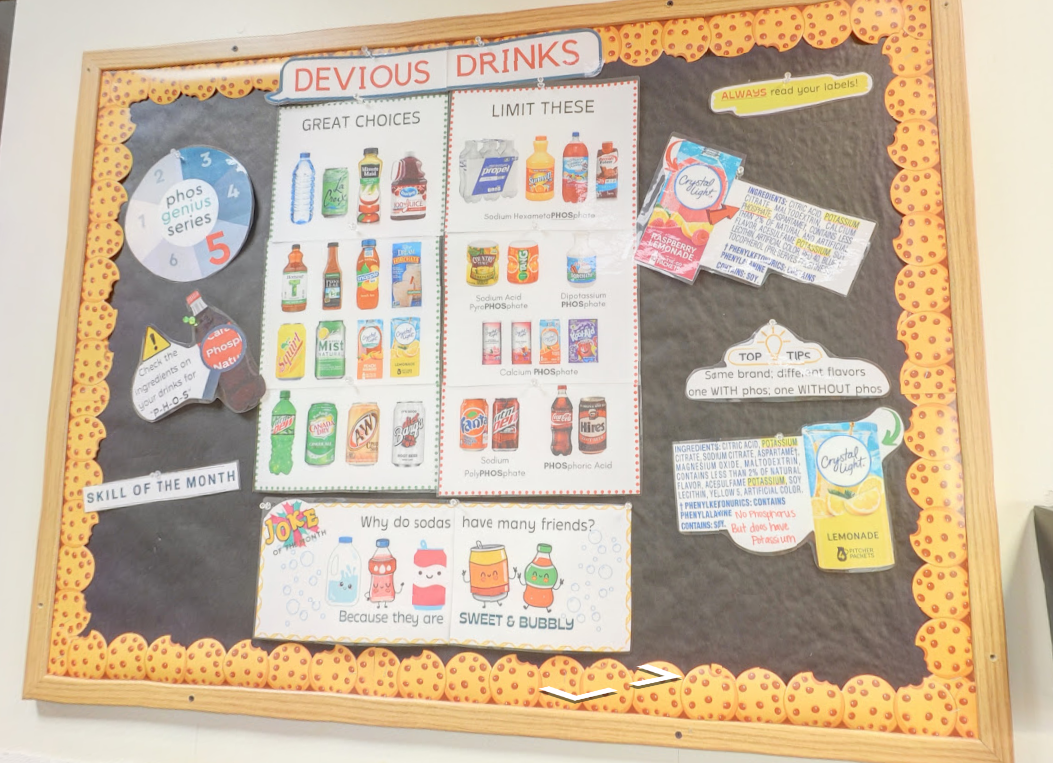 DEVIOUS DRINKS
ALWAYS read your labels!
GREAT CHOICES
LIMIT THESE
2
3
4
phos
genius
series
1
5
6
La Croix
Minute Maid
propel
Sunny D
Sodium HexametaPHOSphate
COUNTRY
TANG
Sodium Acid
PyroPHOSphate
Dipotassium
PHOSphate
Squirt
Mist
Crystal
Light
Kool-Aid
Calcium PHOSphate
CANADA
DRY
A&W
Fanta
Coca-Cola
Hires
Sodium
PolyPHOSphate
PHOSphoric Acid
Check the
ingredients on
your drinks for
"P-H-O-S"
Phosp
Natu
SKILL OF THE MONTH
Crystal
Light
RASPBERRY
LEMONADE
INGREDIENTS: CITRIC ACID, POTASSIUM
CITRATE, MALTODEXTRIN, CALCIUM
PHOSPHATE, ASPARTAME†, CONTAINS LESS
THAN 2% OF NATURAL AND ARTIFICIAL
FLAVOR, ACESULFAME POTASSIUM, SOY
LECITHIN, ARTIFICIAL COLOR,
CONTAINS: SOY.
TOP TIPS
Same brand; different flavors
one WITH phos; one WITHOUT phos
INGREDIENTS: CITRIC ACID, POTASSIUM
CITRATE, SODIUM CITRATE, ASPARTAME†,
MAGNESIUM OXIDE, MALTODEXTRIN,
CONTAINS LESS THAN 2% OF NATURAL
FLAVOR, ACESULFAME POTASSIUM, SOY
LECITHIN, YELLOW 5, ARTIFICIAL COLOR.
† PHENYLKETONURICS: CONTAINS
PHENYLALANINE
CONTAINS: SOY.
No Phosphorus
But does have
Potassium
Crystal
Light
LEMONADE
4 PITCHER
PACKETS
JOKE
OF THE MONTH
Why do sodas have many friends?
Because they are SWEET & BUBBLY